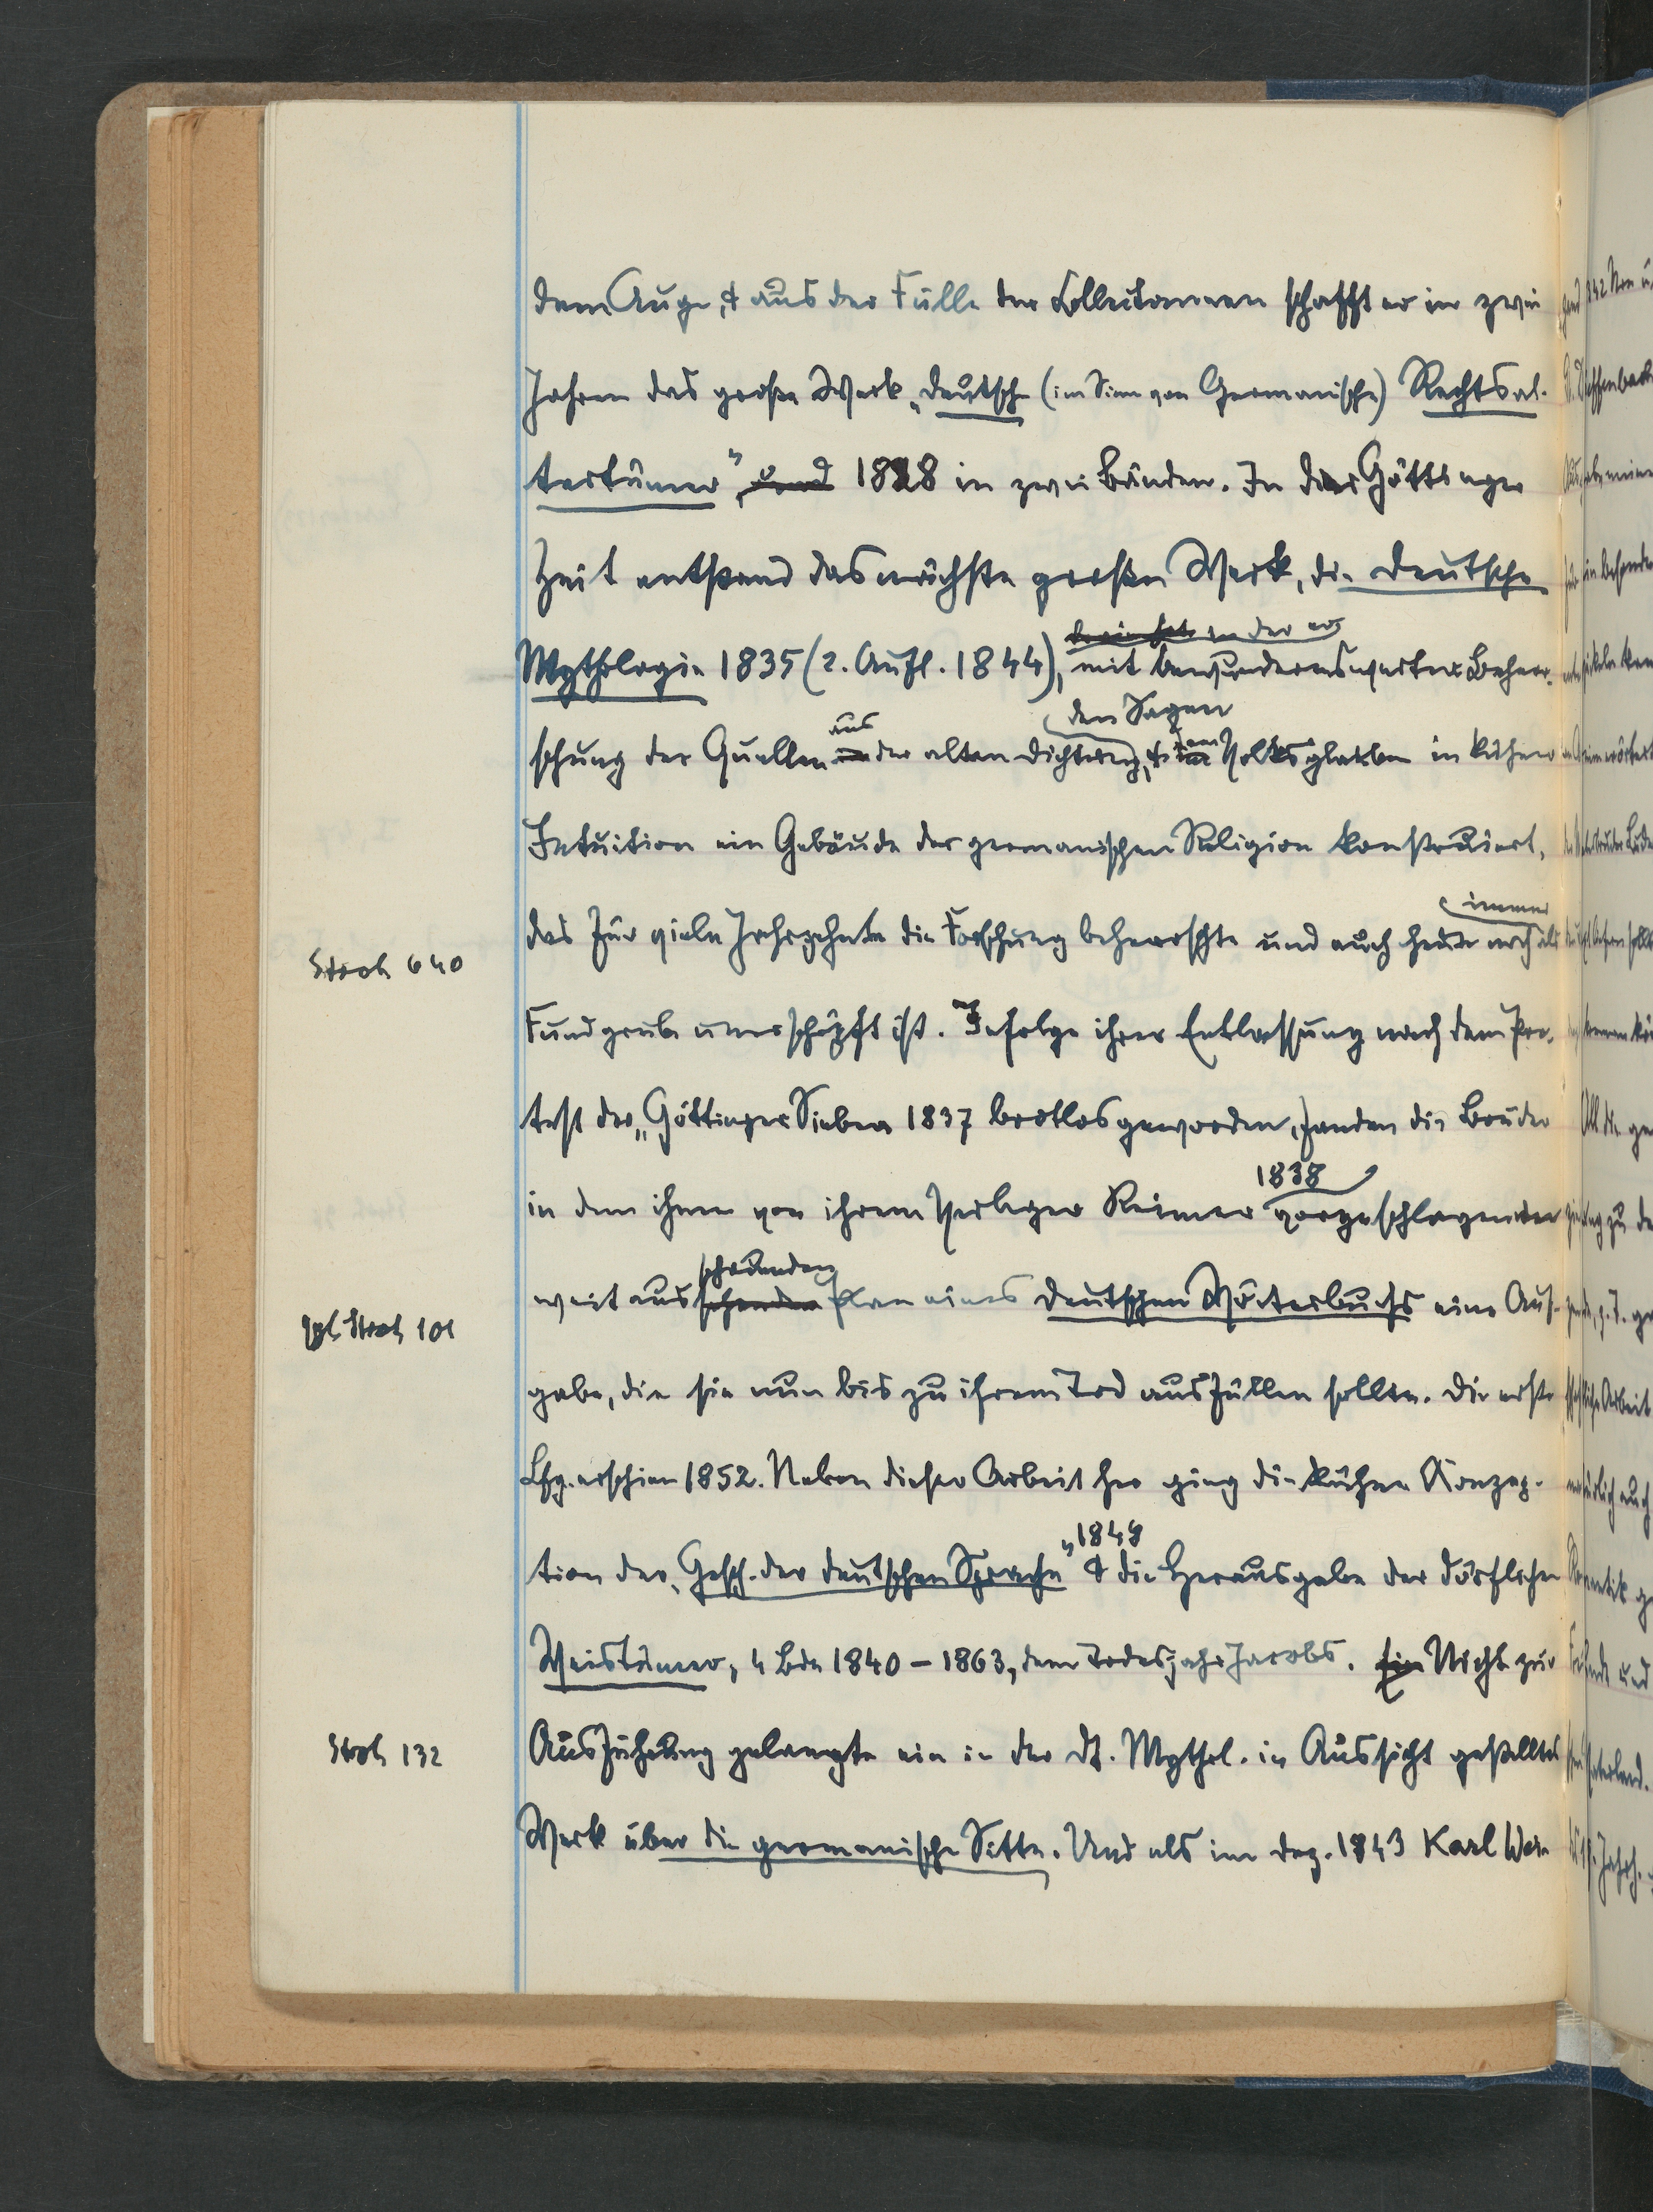 dem Auge, & aus der Fülle der Collectaneen schafft er in zwei
Jahren das große Werk „Deutsche (im Sinn von Germanische) Rechtsal-
tertümer", und 1828 in zwei Bänden. In der Göttinger
Zeit entstand das nächste große Werk, die Deutsche
in der er
Mythologie 1835 (2. Aufl. 1844), mit bewundernswerter Beherr-
aus den Sagen dem
schung der Quellen in der alten Dichtung, & im Volksglauben in kühner
Intuition ein Gebäude der germanischen Religion konstruiert,
immer
das für viele Jahrzehnte die Forschung beherrschte und auch heute noch als
Stroh 640
Fundgrube unerschöpft ist. Infolge ihrer Entlassung nach dem Pro-
test der „Göttinger Sieben 1837 brotlos geworden, fanden die Brüder
1838
in dem ihnen von ihrem Verleger Reimer vorgeschlagenen
schauenden
weit aussehenden Plan eines Deutschen Wörterbuchs eine Auf-
Vgl. Stroh 101
gabe, die sie nun bis zu ihrem Tod ausfüllen sollte. Die erste
Lfg. erschien 1852. Neben dieser Arbeit her ging die kühne Konzep-
1848
tion der „Gesch. der deutschen Sprache" & die Herausgabe der dörflichen
Weistümer, 4 Bde 1840 – 1863, dem Todesjahr Jacobs. Ein Nicht zur
Stroh 132
Ausführung gelangte ein in der Dt. Mythol. in Aussicht gestelltes
Werk über die germanische Sitte. Und als im Dez. 1843 Karl Wei-